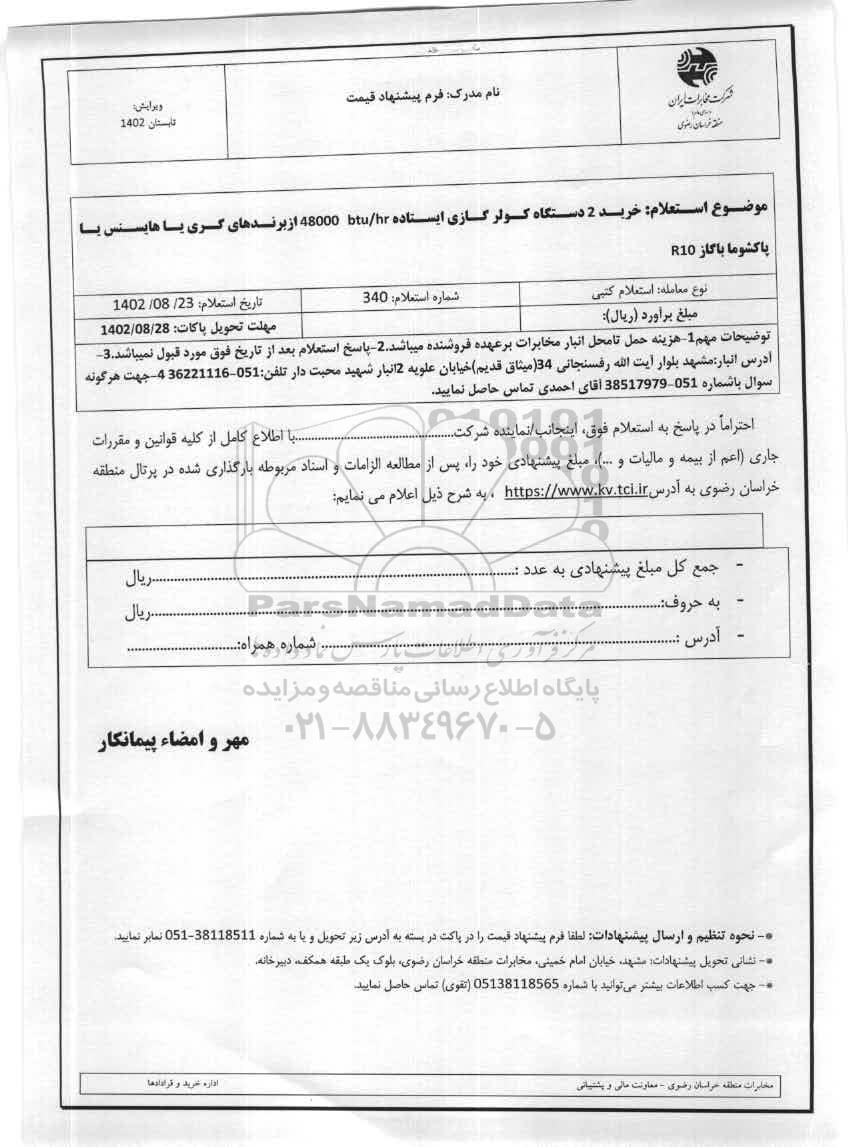 شرکت مخابرات ایران
منطقه خراسان رضوی
نام مدرک: فرم پیشنهاد قیمت
ویرایش:
تابستان 1402
موضوع استعلام: خرید 2 دستگاه کولر گازی ایستاده 48000 btu/hr ازبرندهای گری یا هایسنس یا
پاکشوما باگاز R10
نوع معامله: استعلام کتبی
شماره استعلام: 340
تاریخ استعلام: 23/ 08/ 1402
مبلغ برآورد (ریال):
مهلت تحویل پاکات: 1402/08/28
توضیحات مهم1-هزینه حمل تامحل انبار مخابرات برعهده فروشنده میباشد.2-پاسخ استعلام بعد از تاریخ فوق مورد قبول نمیباشد.3-
آدرس انبار:مشهد بلوار آیت الله رفسنجانی 34(میثاق قدیم)خیابان علویه 2انبار شهید محبت دار تلفن:051-36221116 4-جهت هرگونه
سوال باشماره 051-38517979 آقای احمدی تماس حاصل نمایید.
احتراماً در پاسخ به استعلام فوق، اینجانب/نماینده شرکت................................................با اطلاع کامل از کلیه قوانین و مقررات
جاری (اعم از بیمه و مالیات و ...)، مبلغ پیشنهادی خود را، پس از مطالعه الزامات و اسناد مربوطه بارگذاری شده در پرتال منطقه
خراسان رضوی به آدرس https://www.kv.tci.ir ، به شرح ذیل اعلام می نمایم:
- جمع کل مبلغ پیشنهادی به عدد :..........................................................................................ریال
- به حروف:..........................................................................................ریال
- آدرس :.......................................................................................... شماره همراه:..............................
ParsNamadData
مرکز فرآوری اطلاعات پارس نماد داده ها
پایگاه اطلاع رسانی مناقصه و مزایده
۰۲۱-۸۸۳۴۹۶۷۰-۵
مهر و امضاء پیمانکار
*- نحوه تنظیم و ارسال پیشنهادات: لطفا فرم پیشنهاد قیمت را در پاکت در بسته به آدرس زیر تحویل و یا به شماره 38118511-051 نمابر نمایید.
*- نشانی تحویل پیشنهادات: مشهد، خیابان امام خمینی، مخابرات منطقه خراسان رضوی، بلوک یک طبقه همکف، دبیرخانه.
*- جهت کسب اطلاعات بیشتر می‌توانید با شماره 05138118565 (تقوی) تماس حاصل نمایید.
مخابرات منطقه خراسان رضوی - معاونت مالی و پشتیبانی
اداره خرید و قراردادها